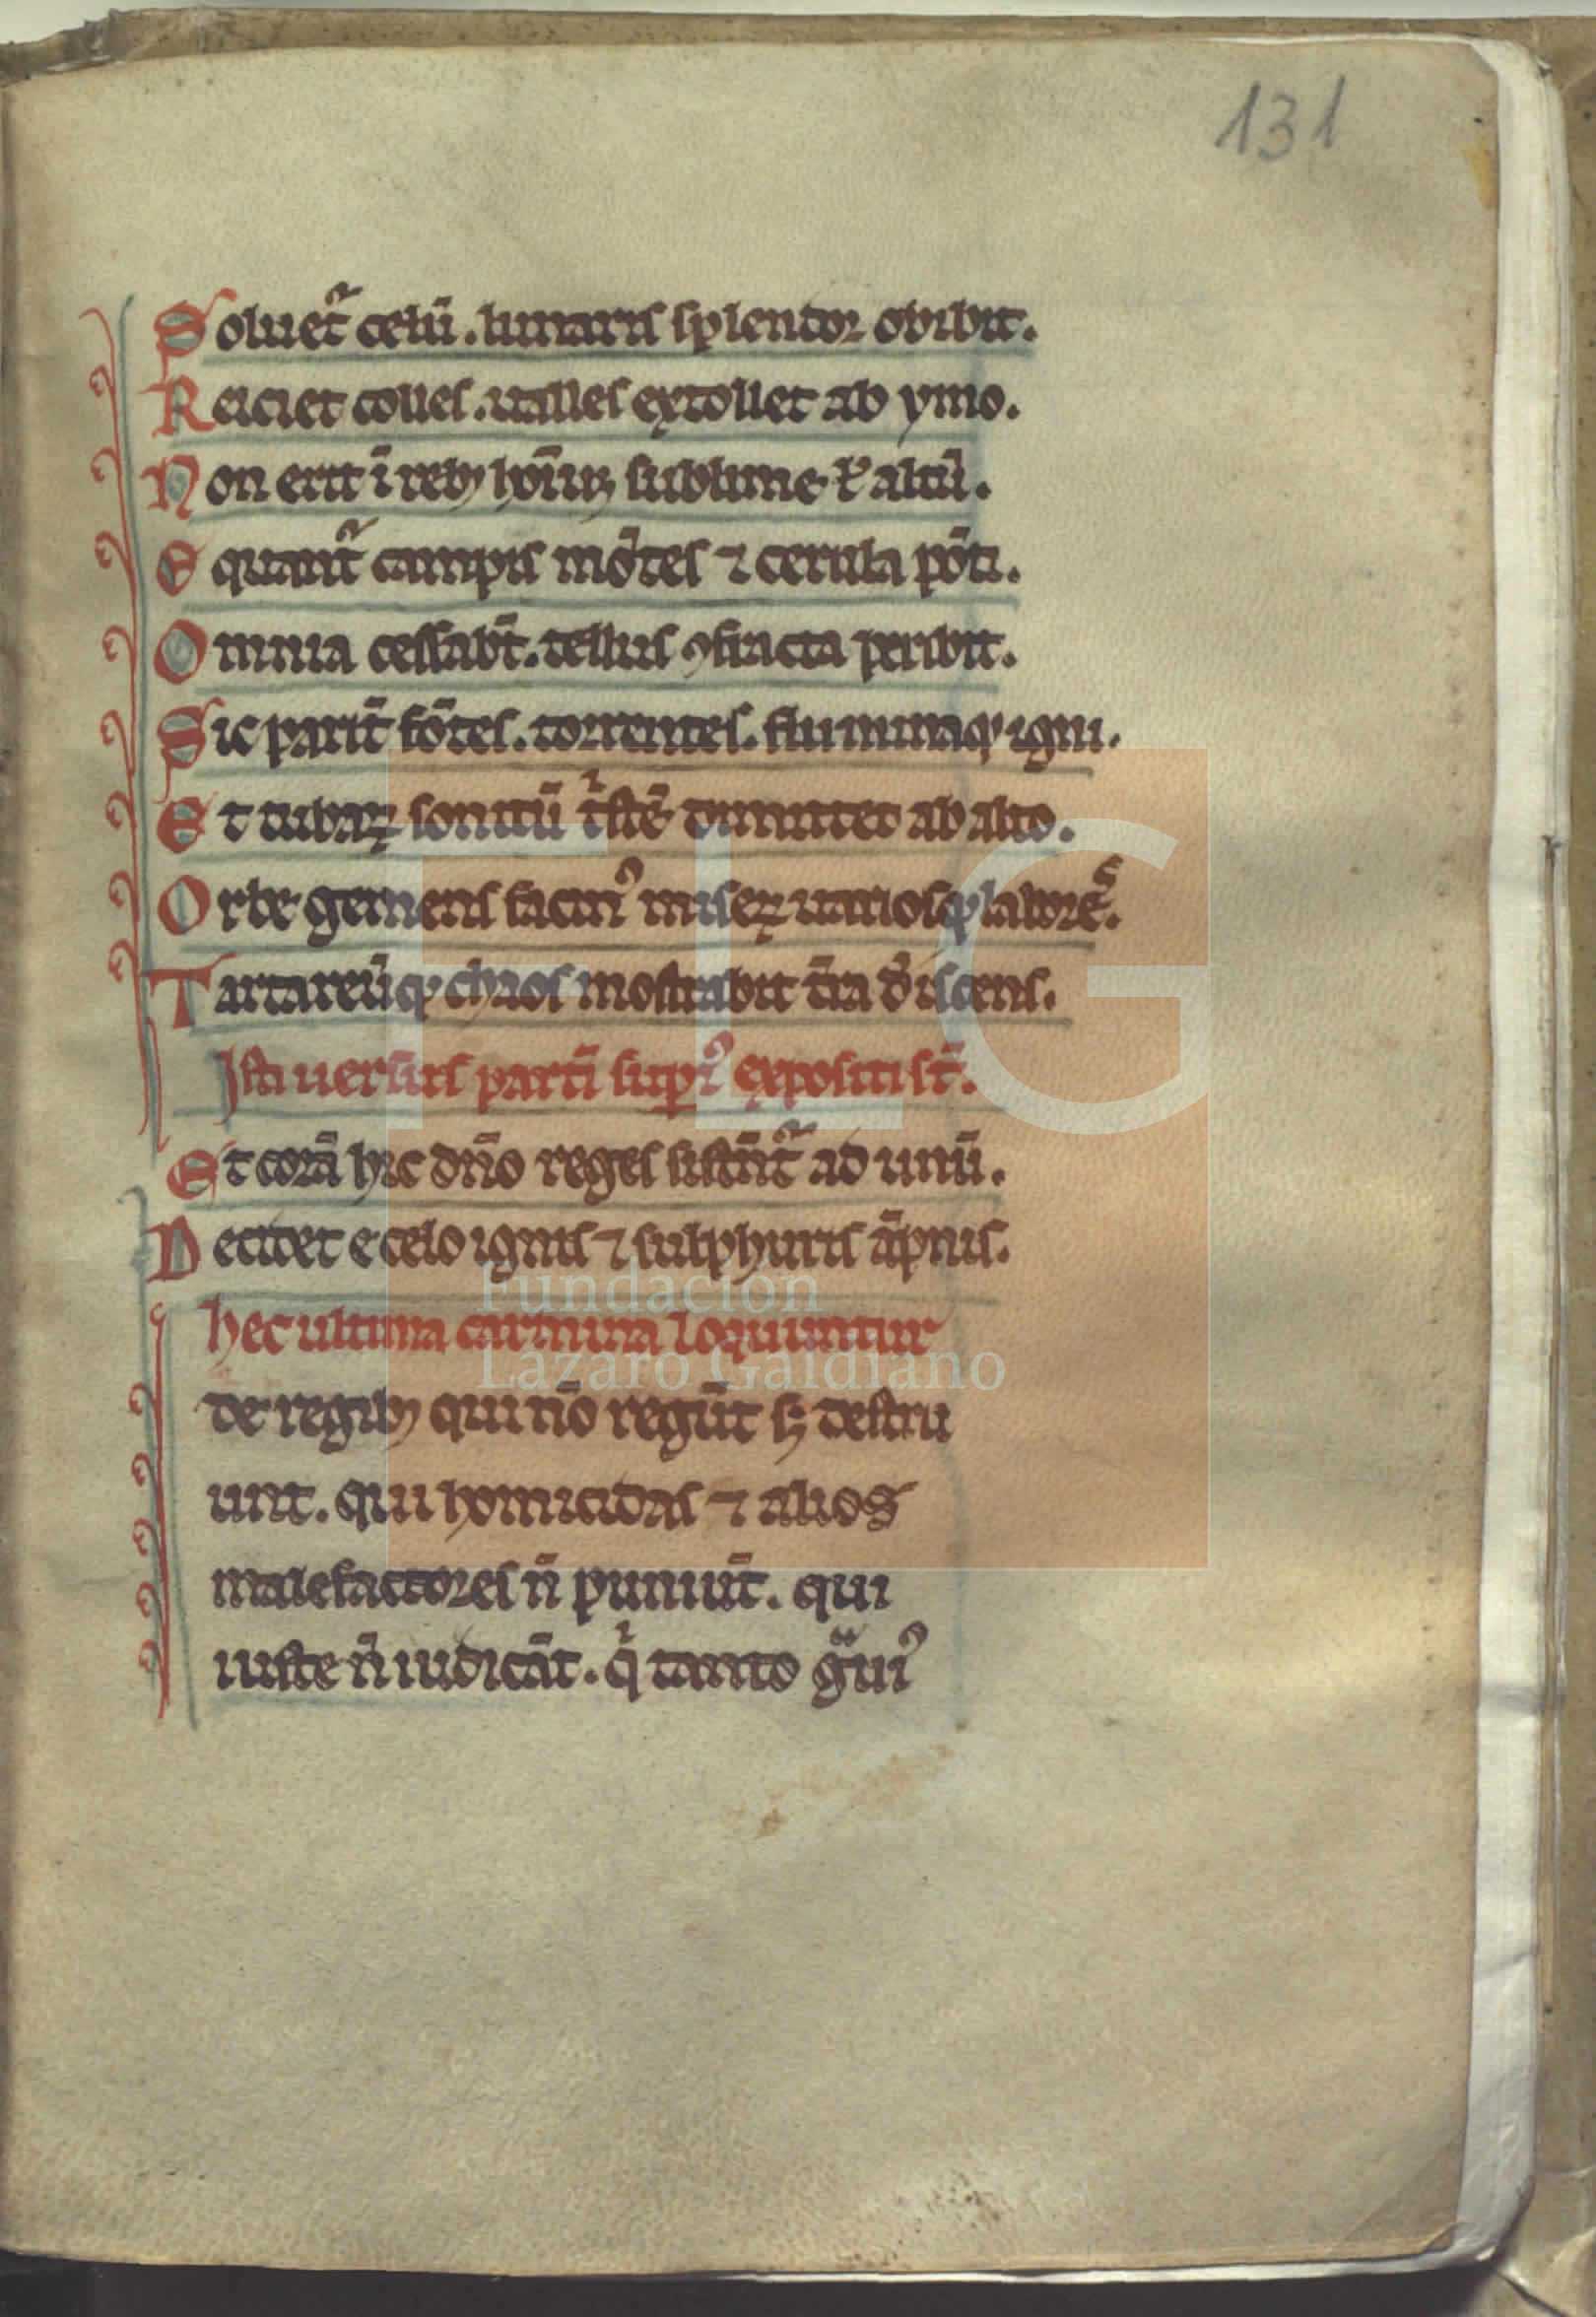 131
Soluet᷑ celū. lunaris splendor obibit.
Reiciet colles. ualles extollet ab ymo.
Non erit ī rebꝫ hoīuꝫ sublime ł altū.
Equant᷑ campis mōtes ⁊ cerula pōti.
Omnia cessabt̄. tellus ꝯfracta peribit.
Sic parit̄ fōtes. torrentes. fluminaqꝫ igni.
Et tubaꝝ sonitū tͥstē dimittet ab alto.
Orbe gemens facinꝰ miseꝝ uariosqꝫ labores.
Tartareūqꝫ chaos mostrabit t̄ra dʼiscens.
Isti uersus partī supiꝰ expositi st̄.
Et corā hic dn̄o reges sistēnt᷑ ad unū.
Decidet e celo ignis ⁊ sulphuris āpnis.
hec ultima carmina loquuntur
de regibꝫ qui nō regūt sꝫ destru
unt. qui homicidas ⁊ alios
malefactores n̄ puniūt. qui
iuste n̄ iudicāt. qͥ tanto gͣuiꝰ
FLG
Fundación
Lázaro Galdiano